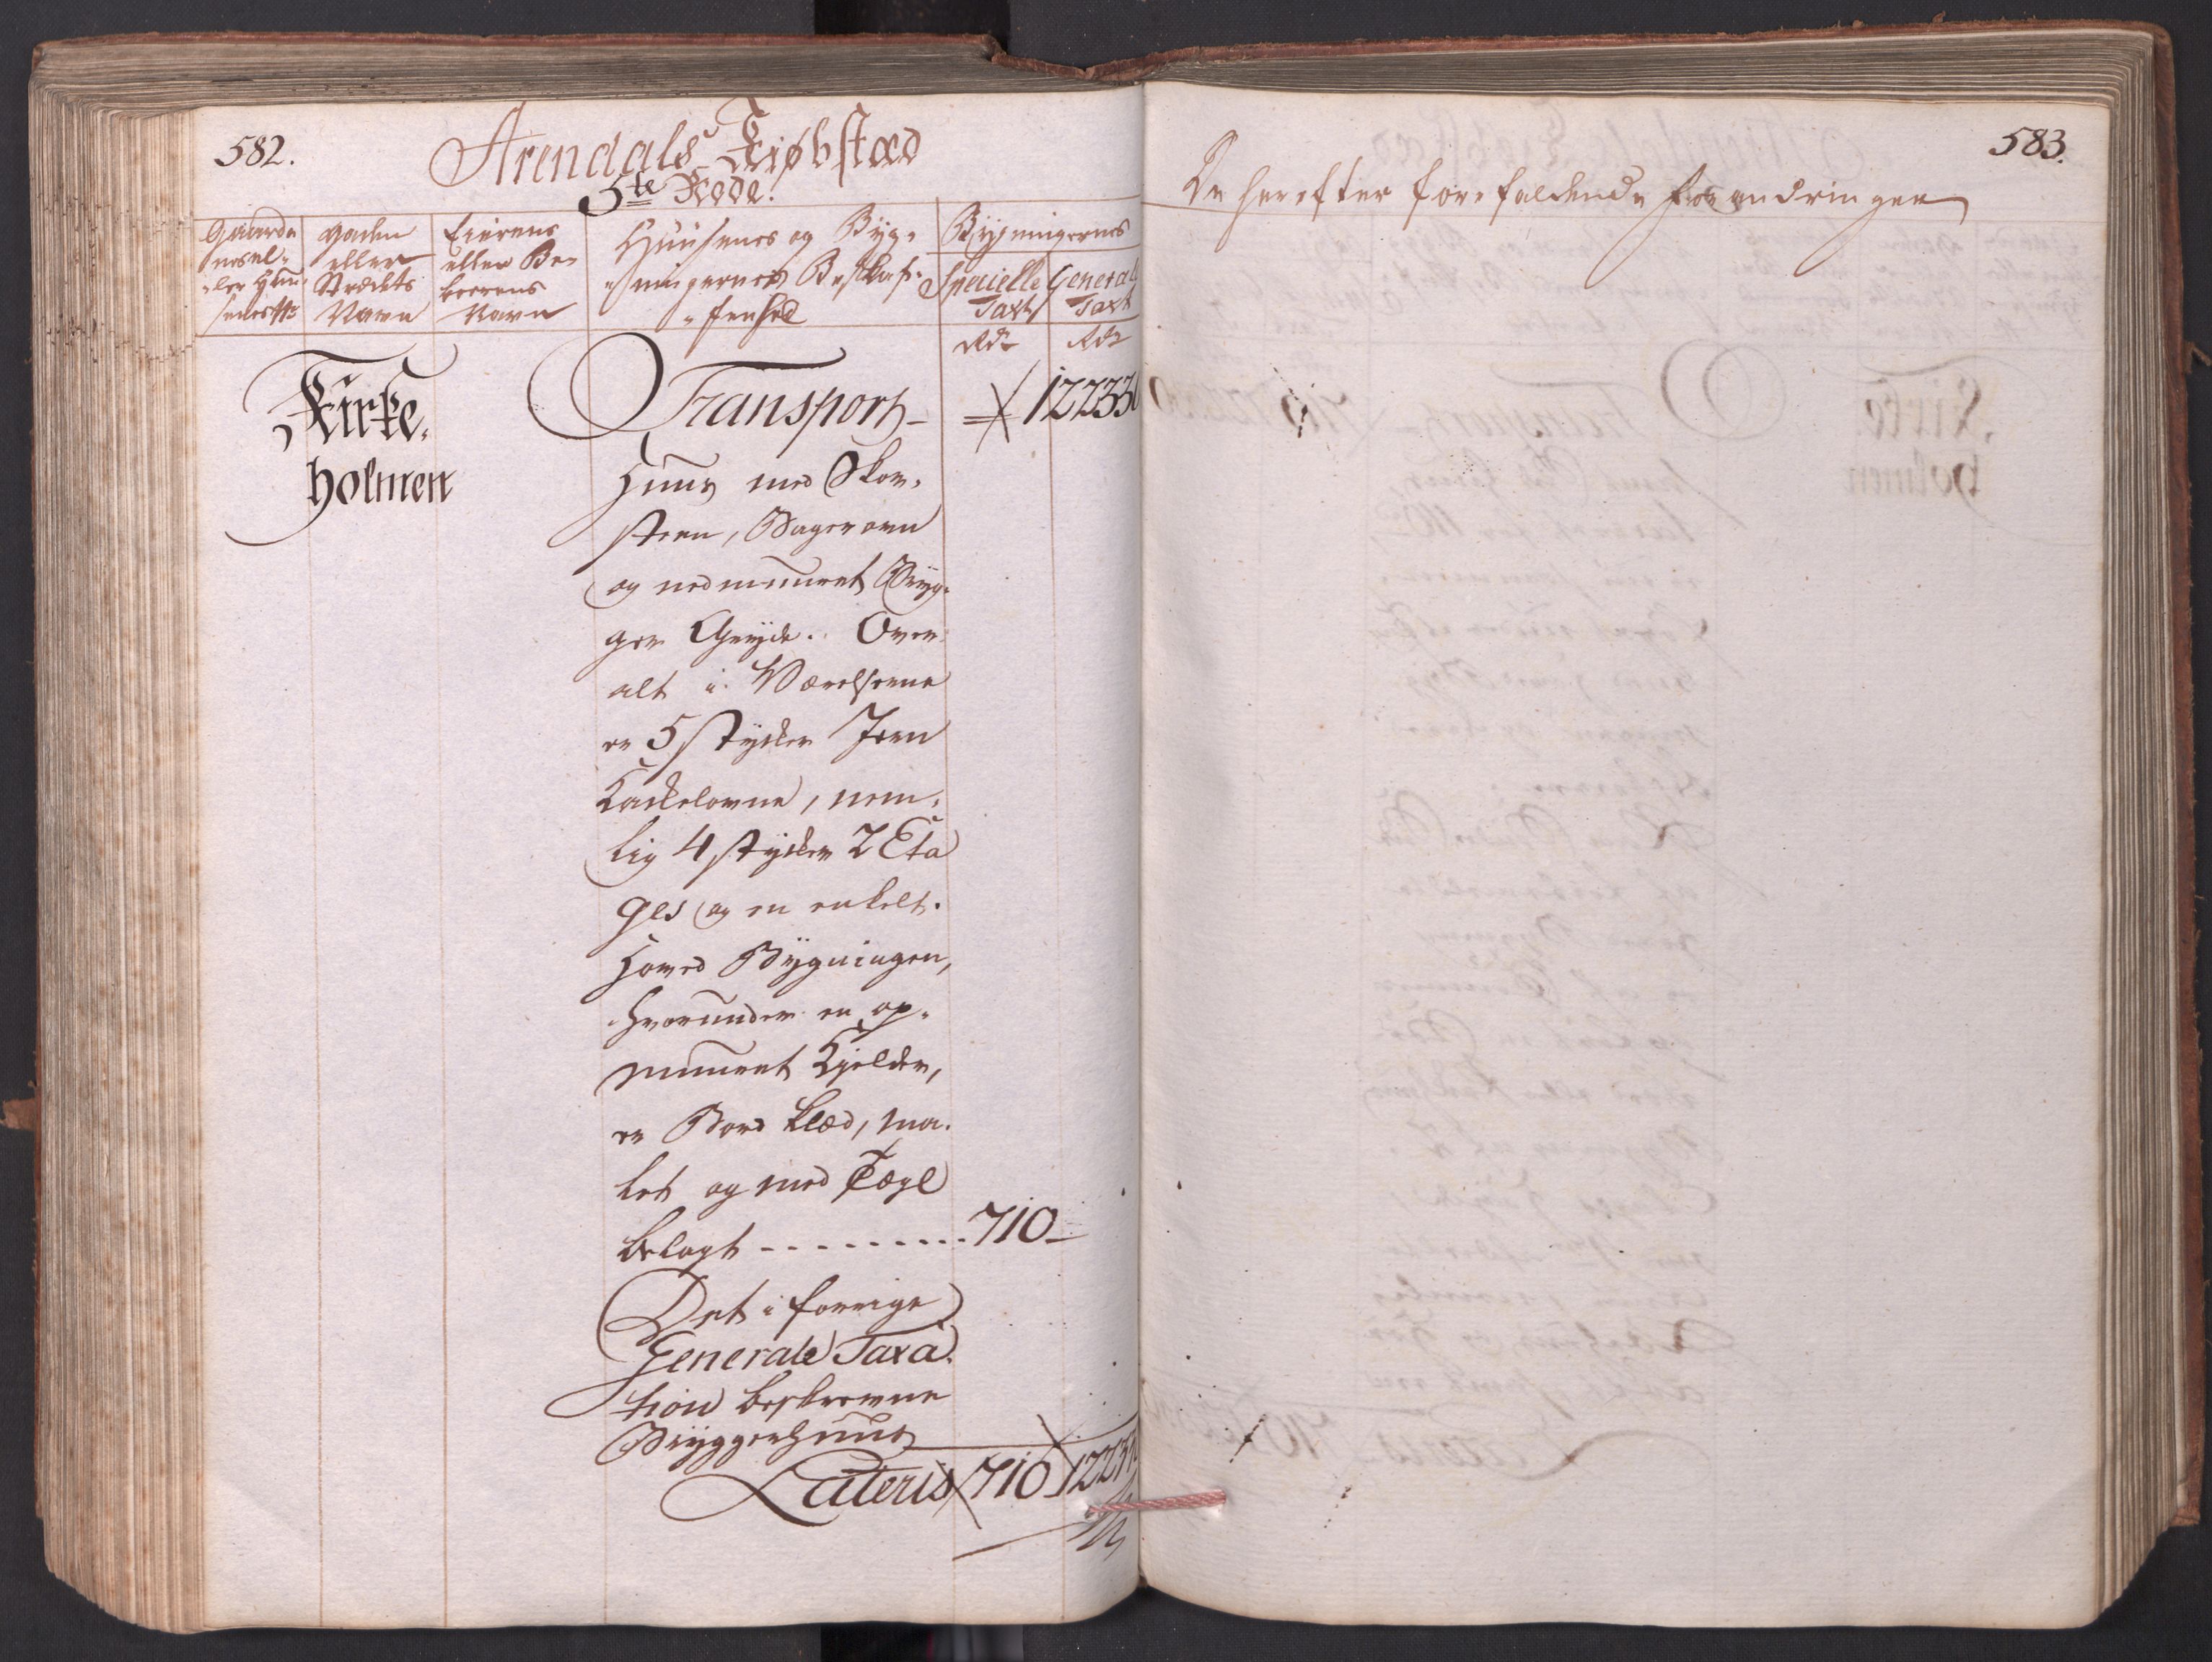 582.
Arendals Kiøbstæd
5te Rode.
Gaarde
nes el-
ler Huu-
senes No
Gaden
eller
Strædets
Navn
Eierens
eller Be-
boerens
Navn
Huusenes og Byg-
ningernes Beskaf-
fenhed
Bygningernes
Specielle
Taxt
Generale
Taxt
Rdr
Rdr
Kirke-
holmen
Transport
12233
Huus med Skor-
steen, Bagerovn
og nedmuuret Bryg-
ger Gryde. Over
alt i Værelserne
er 5 stycker Jern
Kackelovne, nem-
lig 4 stycker 2 Eta
ges og en enkelt.
Hoved Bygningen,
hvorunder en op-
muuret Kjelder,
er Bord klæd, ma-
let og med Tægl
belagt - - - - - - - - - 710
Det i forrige
Generale Taxa-
tion beskrevne
Bryggerhuus
Lateris 710
583.
De herefter forefaldende forandringer